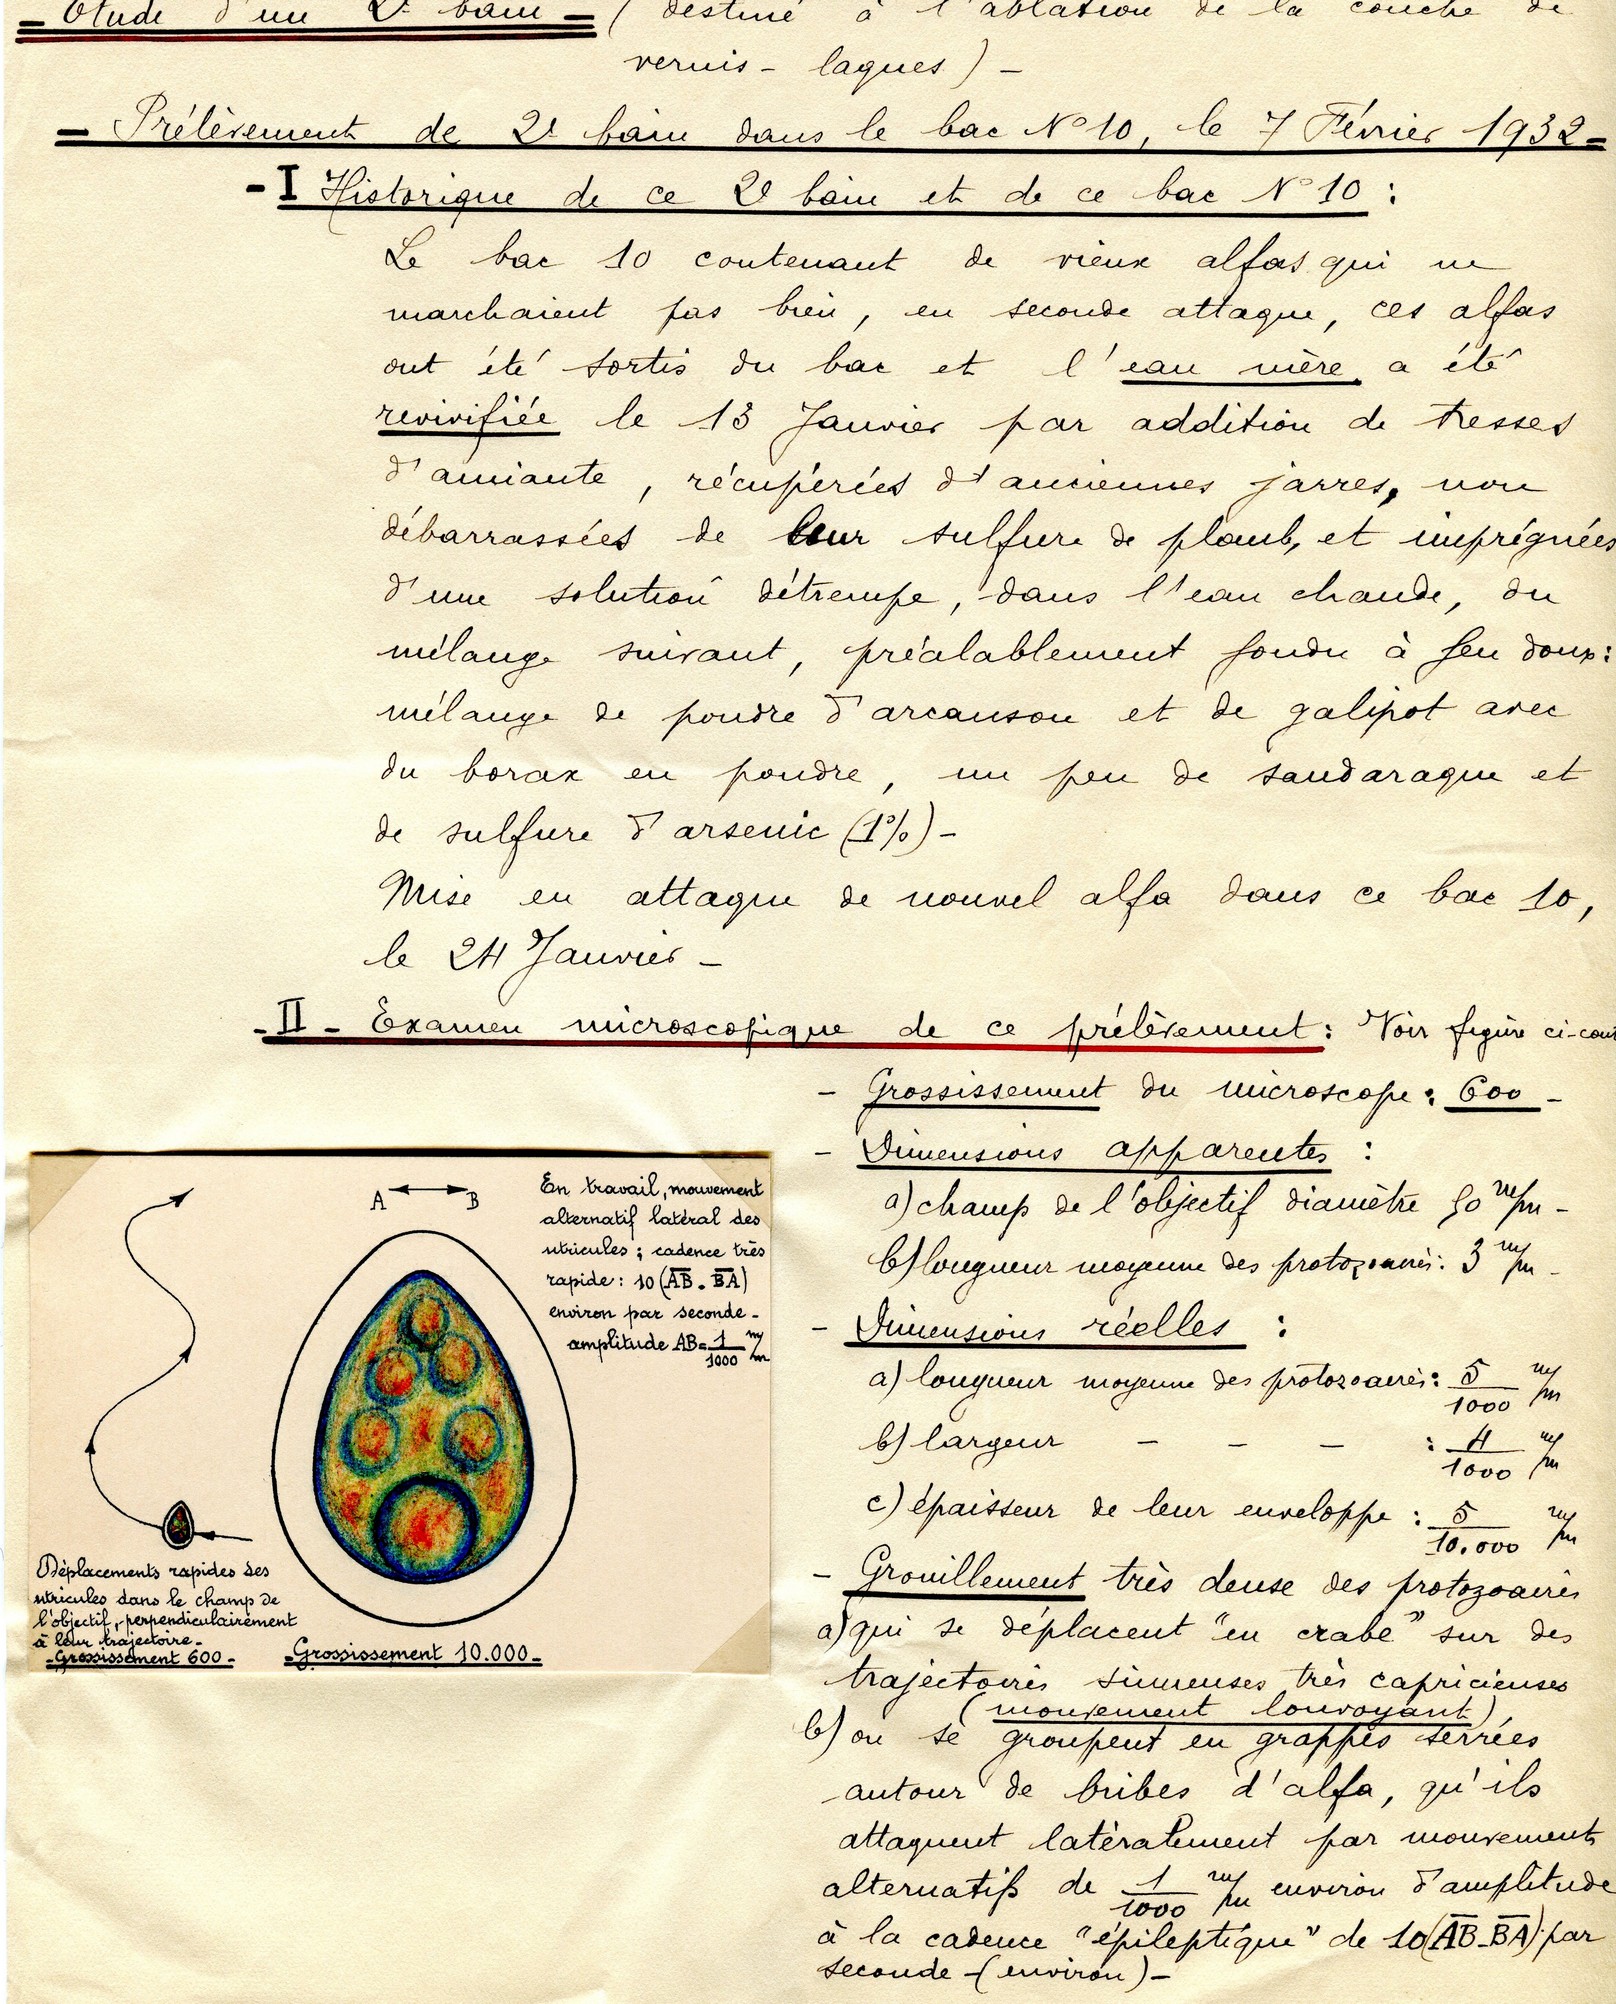 - Etude d'un 2e bain - (destiné à l'ablation de la couche de
vernis - laques) -
- Prélèvement de 2e bain dans le bac N° 10, le 7 Février 1932 -
- I Historique de ce 2e bain et de ce bac N° 10 :
Le bac 10 contenant de vieux alfas qui ne
marchaient pas bien, en seconde attaque, ces alfas
ont été sortis du bac et l'eau mère, a été
revivifiée le 13 Janvier par addition de tresses
d'amiante, récupérées d'anciennes jarres, non
débarrassées de leur sulfure de plomb, et imprégnées
d'une solution détrempe, dans l'eau chaude, du
mélange suivant, préalablement fondu à feu doux :
mélange de poudre d'arcanson et de galipot avec
du borax en poudre, un peu de sandaraque et
de sulfure d'arsenic (1%) -
Mise en attaque de nouvel alfa dans ce bac 10,
le 24 Janvier -
- II - Examen microscopique de ce prélèvement : Voir figure ci-cont
- Grossissement du microscope : 600 -
- Dimensions apparentes :
a) champ de l'objectif diamètre 50 m/m -
b) longueur moyenne des protozoaires : 3 m/m -
- Dimensions réelles :
a) longueur moyenne des protozoaires : 5/1000 m/m
b) largeur - - - : 4/1000 m/m
c) épaisseur de leur enveloppe : 5/10.000 m/m
- Grouillement très dense des protozoaires
a) qui se déplacent "en crabe" sur des
trajectoires sinueuses très capricieuses
(mouvement louvoyant)
b) ou se groupent en grappes serrées
autour de bribes d'alfa, qu'ils
attaquent latéralement par mouvements
alternatifs de 1/1000 m/m environ d'amplitude
à la cadence "épileptique" de 10 (AB - BA) par
seconde - (environ) -
A B
En travail, mouvement
alternatif latéral des
utricules ; cadence très
rapide : 10 (AB - BA)
environ par seconde -
amplitude AB = 1/1000 m/m
Déplacements rapides des
utricules dans le champ de
l'objectif, perpendiculairement
à leur trajectoire -
- Grossissement 600 -
- Grossissement 10.000 -